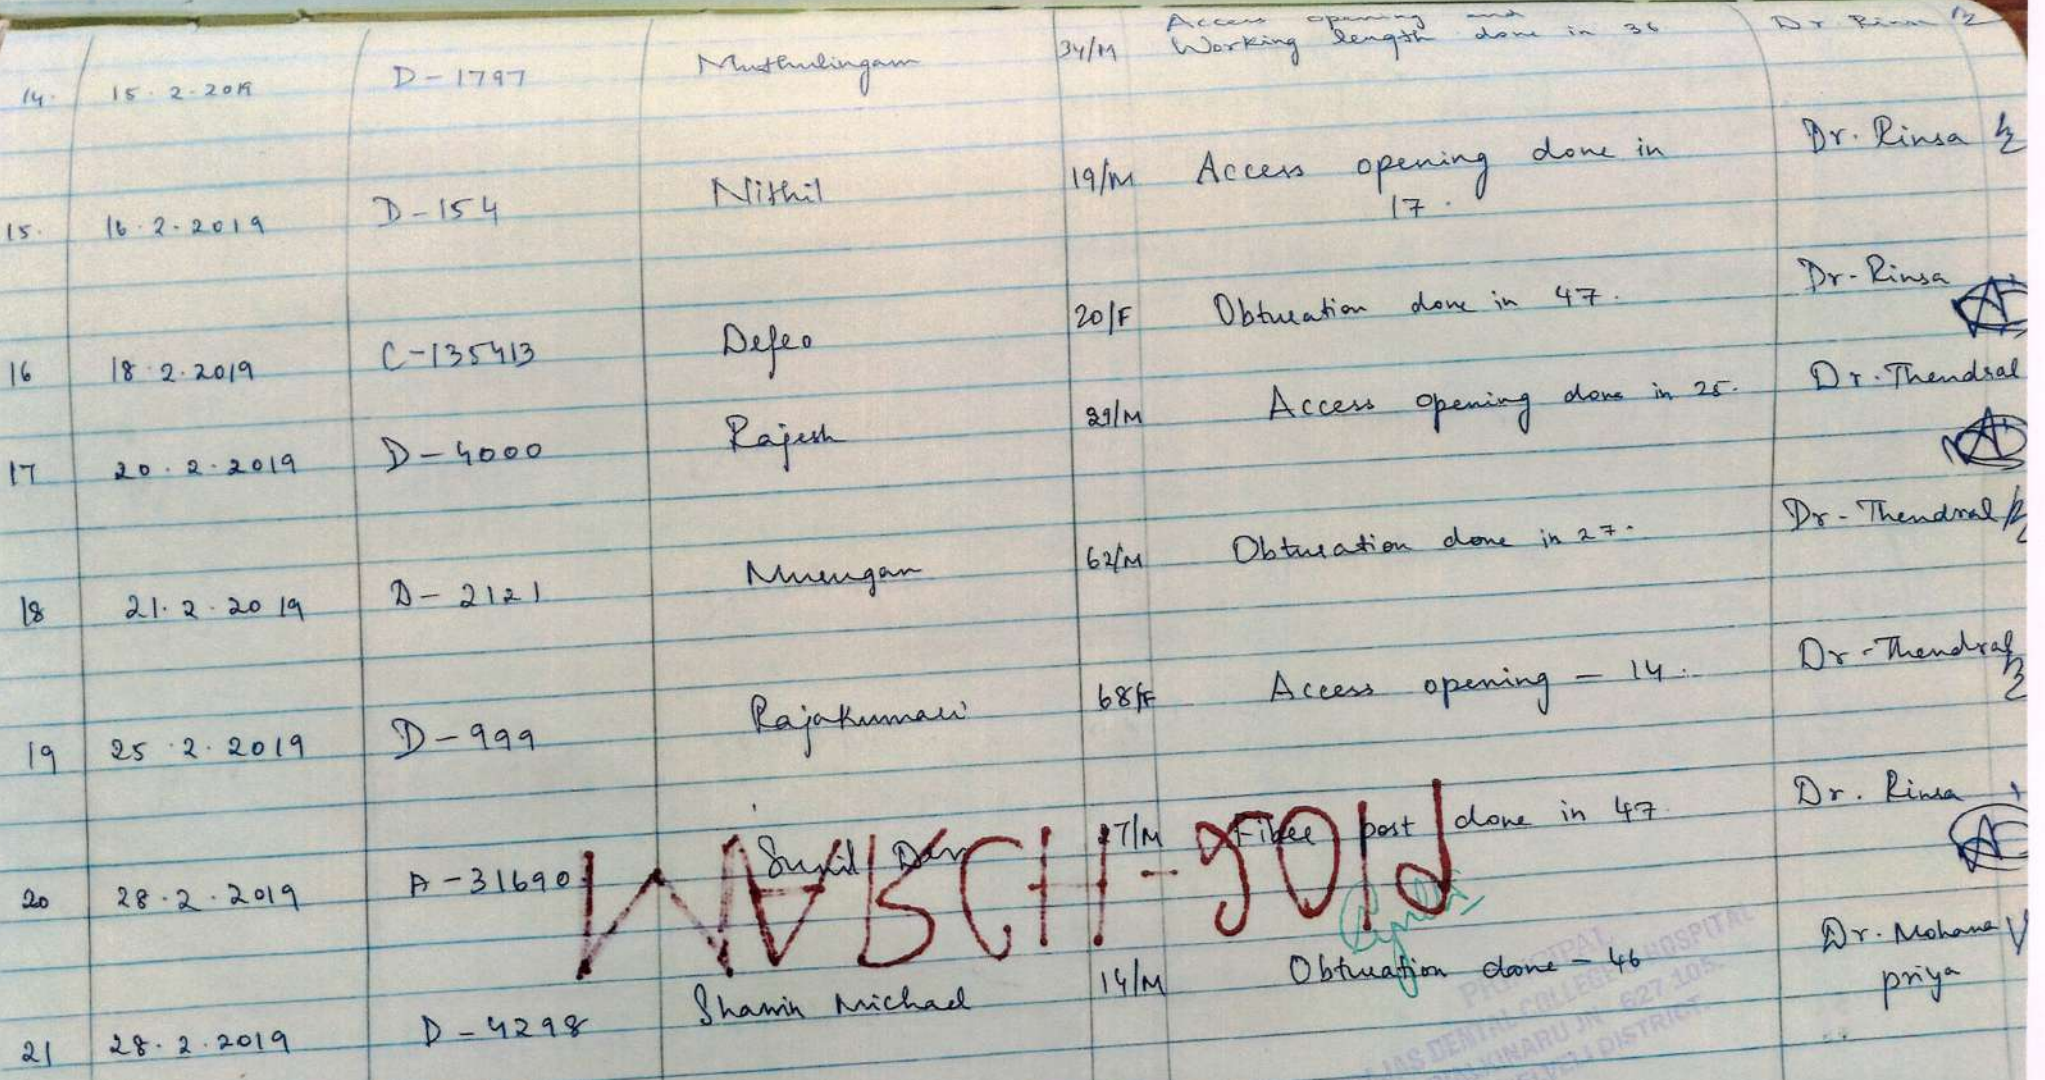 14. 15.2.2019 D-1797 Muthulingam 34/M Access opening and
Working length done in 36 Dr. Rinsa
15. 16.2.2019 D-154 Nithil 19/M Access opening done in Dr. Rinsa
17.
16 18.2.2019 C-135413 Defeo 20/F Obturation done in 47. Dr-Rinsa
17 20.2.2019 D-4000 Rajesh /M Access opening done in 25. Dr.Thendral
18 21.2.2019 D-2121 Murugan 62/M Obturation done in 27. Dr-Thendral
19 25.2.2019 D-999 Rajakumari 68/F Access opening - 14. Dr-Thendral
20 28.2.2019 A-31690 Sunil 7/M Fiber post done in 47. Dr. Rinsa
21 28.2.2019 D-4298 Shamin Michael 14/M Obturation done - 46 Dr. Mohana
priya
PRINCIPAL
DENTAL COLLEGE HOSPITAL
627 105.
DISTRICT.